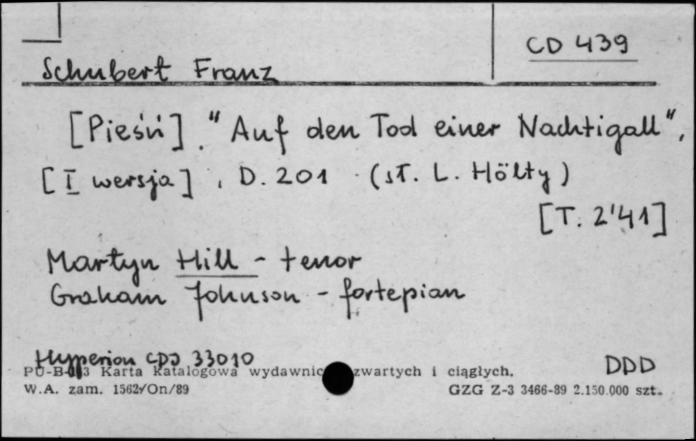 CD 439
Schubert Franz
[Pieśń]. "Auf den Tod einer Nachtigall",
[I wersja], D. 201 (sł. L. Hölty)
[T. 2'41]
Martyn Hill - tenor
Graham Johnson - fortepian
Hyperion CDJ 33010
DDD
Karta katalogowa wydawnic zwartych i ciągłych.
W.A. zam. 1562/On/89 GZG Z-3 3466-89 2.150.000 szt.